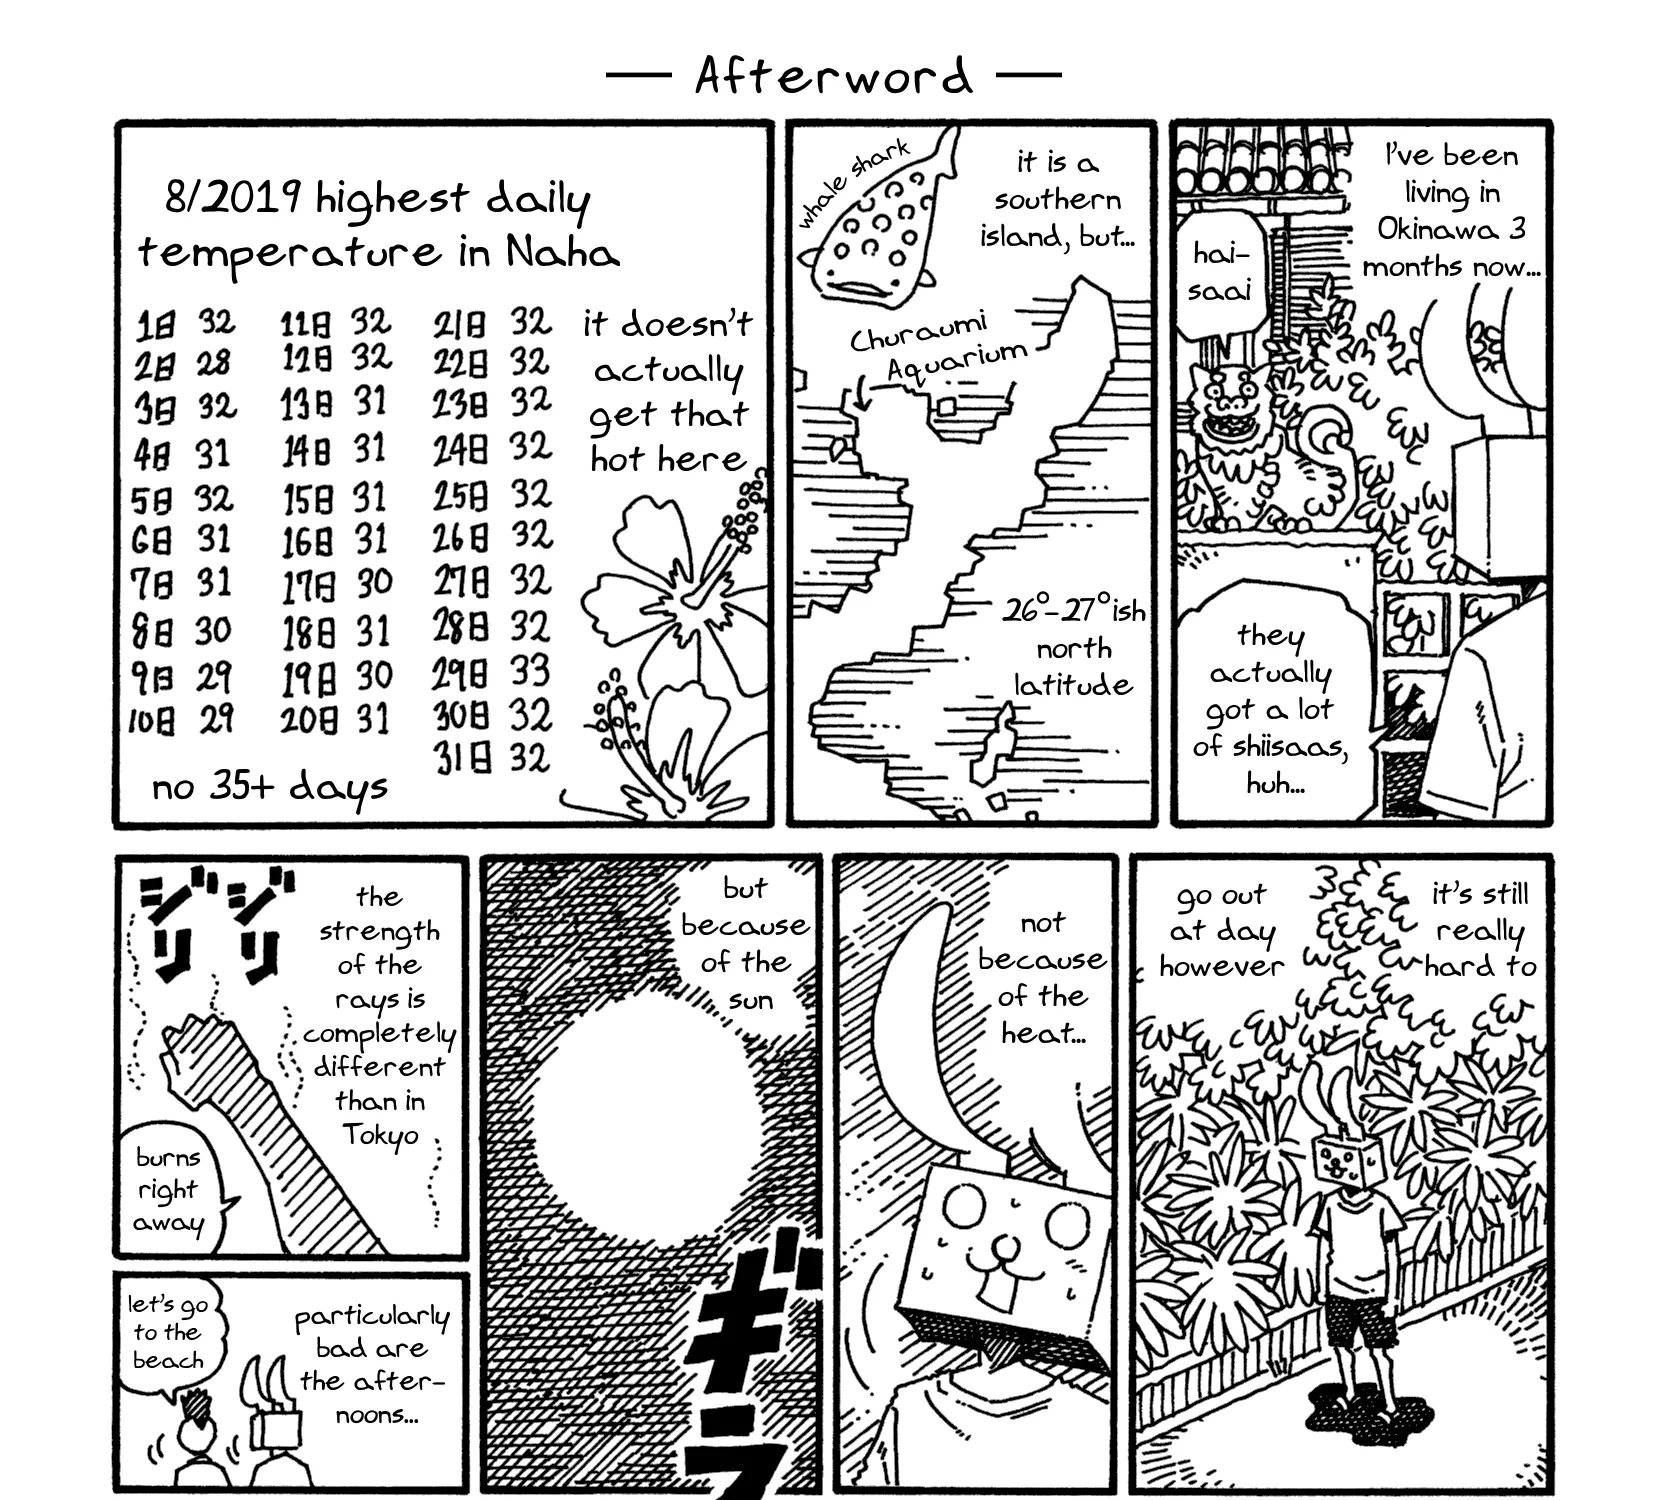 — Afterword —
I've been
living in
Okinawa 3
months now...
hai-
saai
they
actually
got a lot
of shiisaas,
huh...
it is a
southern
island, but...
whale shark
Churaumi
Aquarium
26°-27°ish
north
latitude
8/2019 highest daily
temperature in Naha
1日 32 11日 32 21日 32
2日 28 12日 32 22日 32
3日 32 13日 31 23日 32
4日 31 14日 31 24日 32
5日 32 15日 31 25日 32
6日 31 16日 31 26日 32
7日 31 17日 30 27日 32
8日 30 18日 31 28日 32
9日 29 19日 30 29日 33
10日 29 20日 31 30日 32
31日 32
no 35+ days
it doesn't
actually
get that
hot here
it's still
really
hard to
go out
at day
however
not
because
of the
heat...
but
because
of the
sun
ギラ
the
strength
of the
rays is
completely
different
than in
Tokyo
ジリ
ジリ
burns
right
away
particularly
bad are
the after-
noons...
let's go
to the
beach